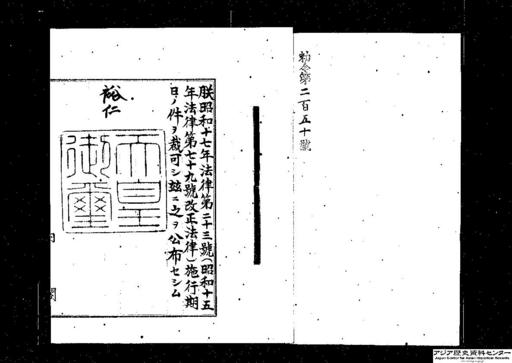 勅令第二百五十號
朕昭和十七年法律第二十三號(昭和十五
年法律第七十九號改正法律)施行期
日ノ件ヲ裁可シ玆ニ之ヲ公布セシム
裕仁
天皇
御璽
内
閣
アジア歴史資料センター
Japan Center for Asian Historical Records